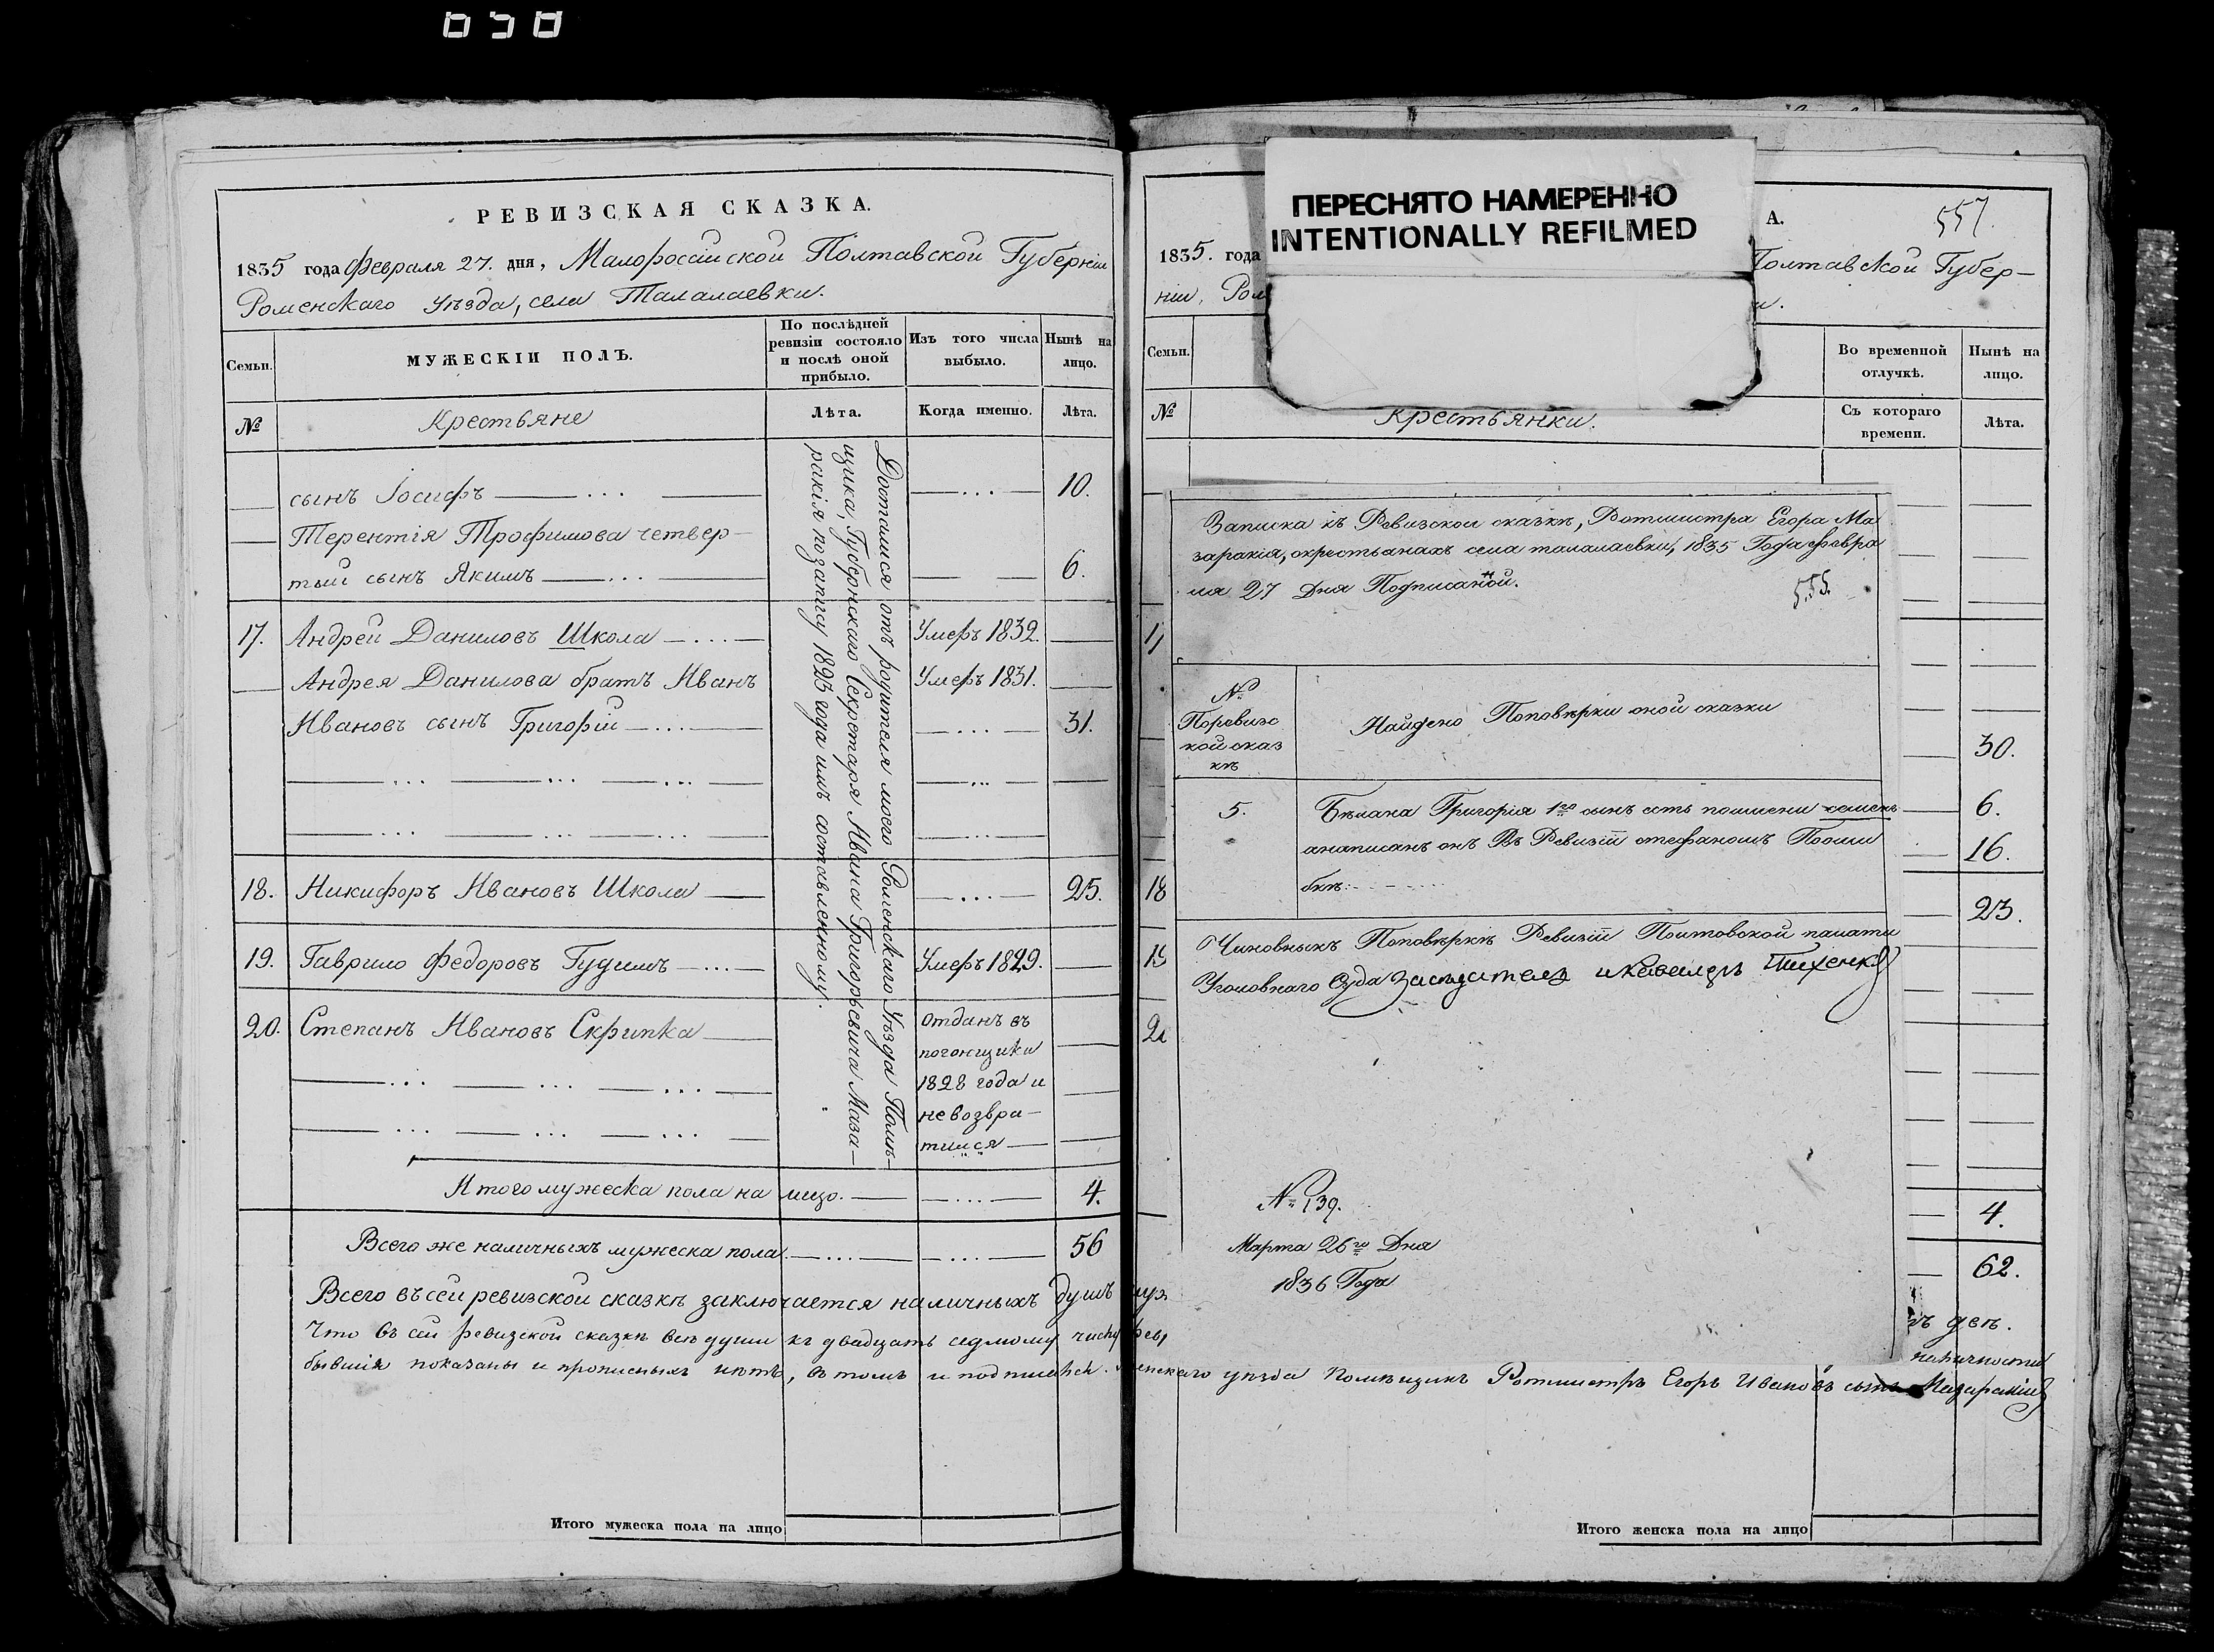 РЕВИЗСКАЯ СКАЗКА.
1835 года Февраля 27. дня, Малоросийской Полтавской Губерніи
Роменскаго уѣзда, села Талалаевки.
Семьи.
МУЖЕСКІЙ ПОЛЪ.
По послѣдней ревизіи состояло и послѣ оной прибыло.
Изъ того числа выбыло.
Нынѣ на лицо.
№
Крестьяне
Лѣта.
Когда именно.
Лѣта.
сынъ Іосифъ 10.
Терентія Трофимова четвер-
тый сынъ Якимъ 6.
17. Андрей Даниловъ Школа Умеръ 1832.
Андрея Данилова братъ Иванъ Умеръ 1831.
Ивановъ сынъ Григорій 31.
18. Никифоръ Ивановъ Школа 25.
19. Гаврило Федоровъ Гудимъ Умеръ 1829.
20. Степанъ Ивановъ Скрипка Отданъ въ
погонщики
1828 года и
невозвра-
тился
Достался отъ родителя моего Роменскаго Уѣзда Помѣ-
щика, Губернскаго Секретаря Ивана Григорьевича Маза-
ракія по запису 1823 года имъ составленному.
Итого мужеска пола на лицо. 4.
Всего же наличныхъ мужеска пола 56
Всего въ сей ревизской сказкѣ заключается наличныхъ душъ муж
Что въ сей ревизской сказкѣ всѣ души къ двадцать седмому числу февр
бывшія показаны и прописныхъ нѣтъ, въ томъ и подписался.
Итого мужеска пола на лицо
А.
557.
1835. года
Полтавской Губер-
ніи, Ром
и.
ПЕРЕСНЯТО НАМЕРЕННО
INTENTIONALLY REFILMED
Семьи.
Во временной отлучкѣ.
Нынѣ на лицо.
№
Крестьянки.
Съ котораго времени.
Лѣта.
Записка къ Ревизской сказкѣ, Ротмистра Егора Ма
заракія, окрестьянахъ села талалаевки, 1835 Года февра
ля 27 Дня Подписанной.
555.
№
Поревизс
кой сказ
кѣ
Найдено Поповѣрки оной сказки
5. Бѣлана Григорія 1го сынъ есть поимени семенъ
анаписанъ онъ Въ Ревизіи стефаномъ Пооши
бкѣ:
Чиновныкъ Поповѣркѣ Ревизіи Полтовской палати
Уголовнаго Суда Засѣдатель и Кавалеръ
№ 139.
Марта 26го Дня
1836 Года
18
30.
6.
16.
23.
4.
62.
наличности
енскаго уѣзда Помѣщикъ Ротмистръ Егоръ Ивановъ сынъ Мазаракій
Итого женска пола на лицо